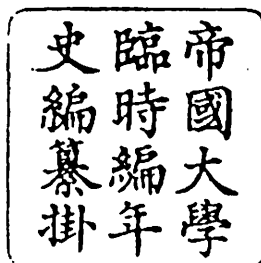 帝國大學
臨時編年
史編纂掛